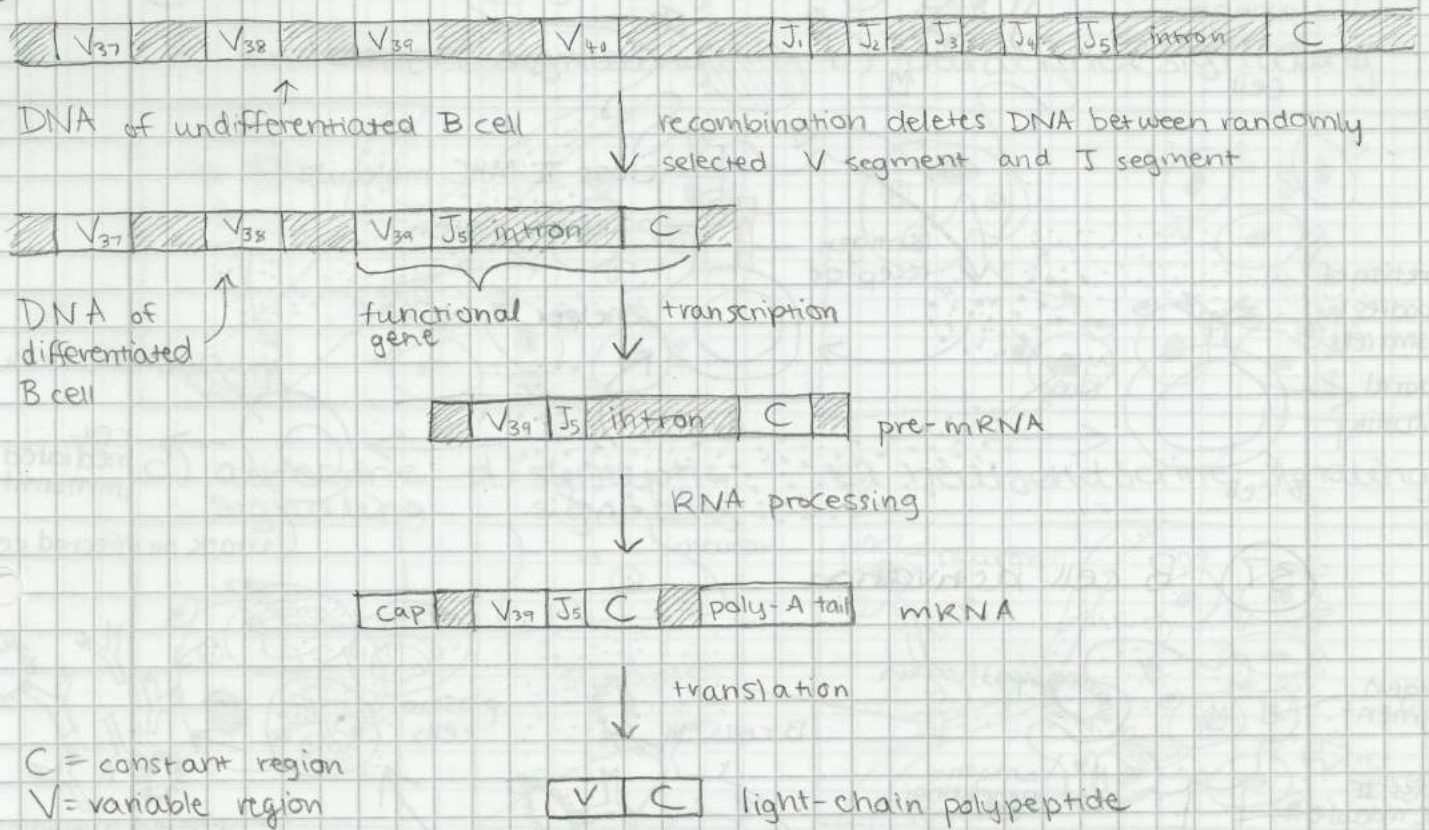 V37 V38 V39 V40 J1 J2 J3 J4 J5 intron C
DNA of undifferentiated B cell
recombination deletes DNA between randomly
selected V segment and J segment
V37 V38 V39 J5 intron C
DNA of
differentiated
B cell
functional
gene
transcription
V39 J5 intron C pre-mRNA
RNA processing
cap V39 J5 C poly-A tail mRNA
translation
C = constant region
V = variable region
V C light-chain polypeptide